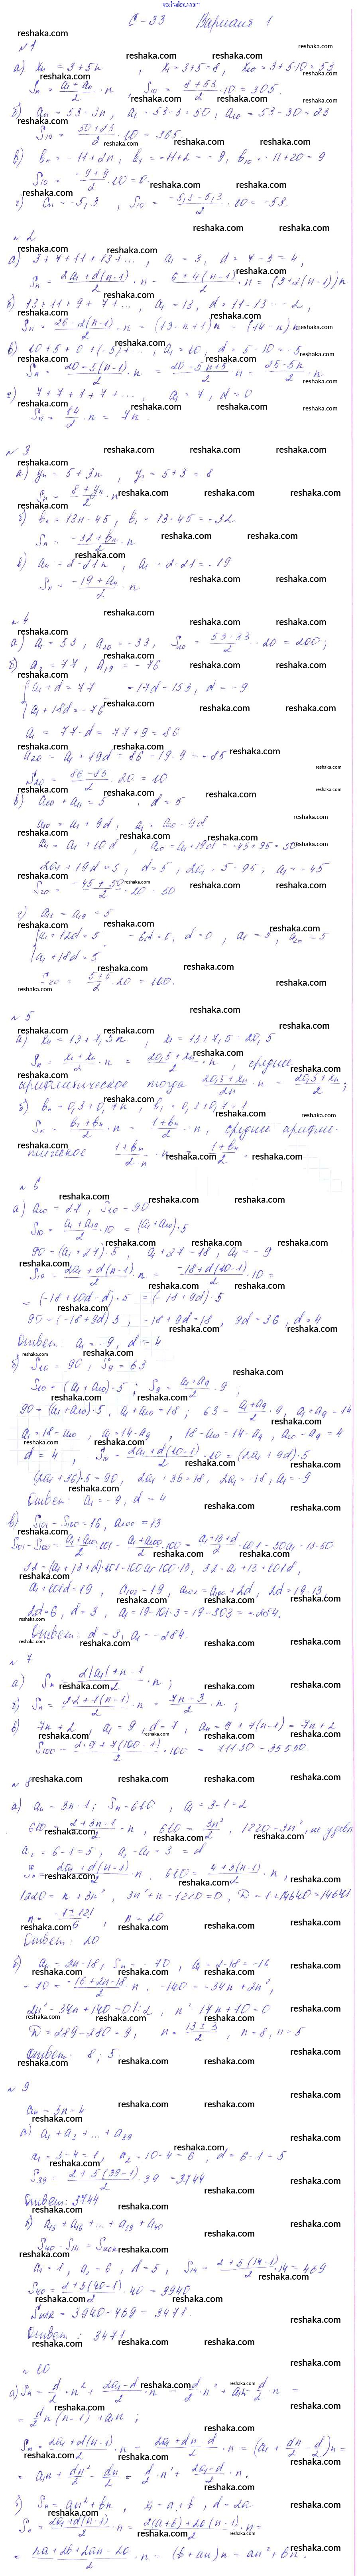 reshaka.com
С-33 Вариант 1
№1
а) xn = 3+5n, x1 = 3+5=8, x10 = 3+5·10=53
Sn = (a1+an)/2 · n, S10 = (8+53)/2 · 10 = 305.
б) an = 53-3n, a1 = 53-3=50, a10 = 53-30=23
S10 = (50+23)/2 · 10 = 365
в) bn = -11+2n, b1 = -11+2=-9, b10 = -11+20=9
S10 = (-9+9)/2 · 10=0
г) Cn = -5,3, S10 = (-5,3-5,3)/2 · 10 = -53.
№2
а) 3+7+11+13+..., a1 = 3, d = 7-3=4,
Sn = (2a1+d(n-1))/2 · n = (6+4(n-1))/2 · n = (3+2(n-1))n
б) 13+11+9+7+..., a1=13, d=11-13=-2,
Sn = (26-2(n-1))/2 · n = (13-n+1)n = (14-n)n
в) 10+5+0+(-5)+..., a1=10, d=5-10=-5
Sn = (20-5(n-1))/2 · n = (20-5n+5)/2 · n = (25-5n)/2 · n
г) 7+7+7+7+..., a1=7, d=0
Sn = 14/2 · n = 7n.
№3
а) yn = 5+3n, y1 = 5+3=8
Sn = (8+yn)/2 · n
б) bn = 13n-45, b1 = 13-45=-32
Sn = (-32+bn)/2 · n
в) an = 2-21n, a1 = 2-21=-19
Sn = (-19+an)/2 · n
№4
а) a1 = 53, a20 = -33, S20 = (53-33)/2 · 20 = 200;
б) a2 = 77, a19 = -76
a1+d=77 -17d=153, d=-9
a1+18d=-76
a1 = 77-d = 77+9 = 86
a20 = a1+19d = 86-19·9=-85
S20 = (86-85)/2 · 20=10
в) a10+a11=5, d=5
a10 = a1+9d, a1 = a10-9d
a11 = a1+10d, a20=a1+19d=-45+95=50
2a1+19d=5, d=5, 2a1=5-95, a1=-45
S20 = (-45+50)/2 · 20=50
a1+12d=5 -6d=0, d=0, a1=5, a20=5
a1+18d=5
S20 = (5+5)/2 · 20=100.
№5
а) xn = 13+7,5n, x1 = 13+7,5=20,5
Sn = (x1+xn)/2 · n = (20,5+xn)/2 · n, среднее
арифметическое тогда (20,5+xn)/2n · n = (20,5+xn)/2;
б) bn = 0,3+0,7n, b1 = 0,3+0,7=1
Sn = (b1+bn)/2 · n = (1+bn)/2 · n, среднее арифме-
тическое (1+bn)/(2·n) · n = (1+bn)/2.
№6
а) a10 = 27, S10=90
S10 = (a1+a10)/2 · 10 = (a1+a10)·5
90=(a1+27)·5, a1+27=18, a1=-9
S10 = (2a1+d(n-1))/2 · n = (-18+d(10-1))/2 · 10=
= (-18+10d-d)·5 = (-18+9d)·5
90=(-18+9d)·5, -18+9d=18, 9d=36, d=4
Ответ: a1=-9, d=4
б) S10=90, S9=63
S10 = (a1+a10)·5; S9 = (a1+a9)/2 · 9;
90=(a1+a10)·5, a1+a10=18; 63=(a1+a9)/2 · 9, a1+a9=14
a1=18-a10, a1=14-a9, 18-a10=14-a9, a10-a9=4
d=4, S10 = (2a1+d(10-1))/2 · 10=(2a1+9d)·5
(2a1+36)·5=90, 2a1+36=18, 2a1=-18, a1=-9
Ответ: a1=-9, d=4
в) S101-S100=16, a100=13
Ответ: d=3, a1=-284.
№7
а) Sn = (2|a1|+n-1)/2 · n;
Sn = (22+7(n-1))/2 · n = (7n-3)/2 · n;
в) 7n+2, a1=9, d=7, an=9+7(n-1)=7n+2
S100 = (2·9+7(100-1))/2 · 100 = 71150=35550
№8
а) an=3n-1; Sn=610, a1=3-1=2
a2=6-1=5, a2-a1=3=d
Sn = (2a1+d(n-1))/2 · n, 610=(4+3(n-1))/2 · n,
1220=n+3n², 3n²+n-1220=0, D=1+14640=14641
n = (-1±121)/6, n=20
Ответ: 20
б) an=2n-18, Sn=-70, a1=2-18=-16
-70=(-16+2n-18)/2 · n, -140=-34n+2n²,
2n²-34n+140=0|:2, n²-17n+70=0
D=289-280=9, n=(13±3)/2, n=8, n=5
Ответ: 8; 5.
№9
an=5n-4
а) a1+a3+...+a39
a1=5-4=1, a2=10-4=6, d=6-1=5
S39 = (2+5(39-1))/2 · 39=3744
Ответ: 3744
б) a15+a16+...+a39+a40
S40-S14=Sиск
a1=1, a2=6, d=5, S14=(2+5(14-1))/2 · 14=469
S40=(2+5(40-1))/2 · 40=3940
Sиск=3940-469=3471.
Ответ: 3471
№10
а) Sn = d/2 · n² + (2a1-d)/2 · n = d/2 · n² + a1n - d/2 · n =
= d/2 n(n-1)+a1n;
Sn = (2a1+d(n-1))/2 · n = (2a1+dn-d)/2 · n = (a1+dn/2-d/2)n=
= a1n+dn²/2-dn/2 = d/2 · n²+(2a1-d)/2 · n.
б) Sn = an²+bn, x1=a+b, d=2a
Sn = (2a1+d(n-1))/2 · n = (2(a+b)+2a(n-1))/2 · n=
= (2a+2b+2an-2a)/2 · n = (b+an)n = an²+bn.